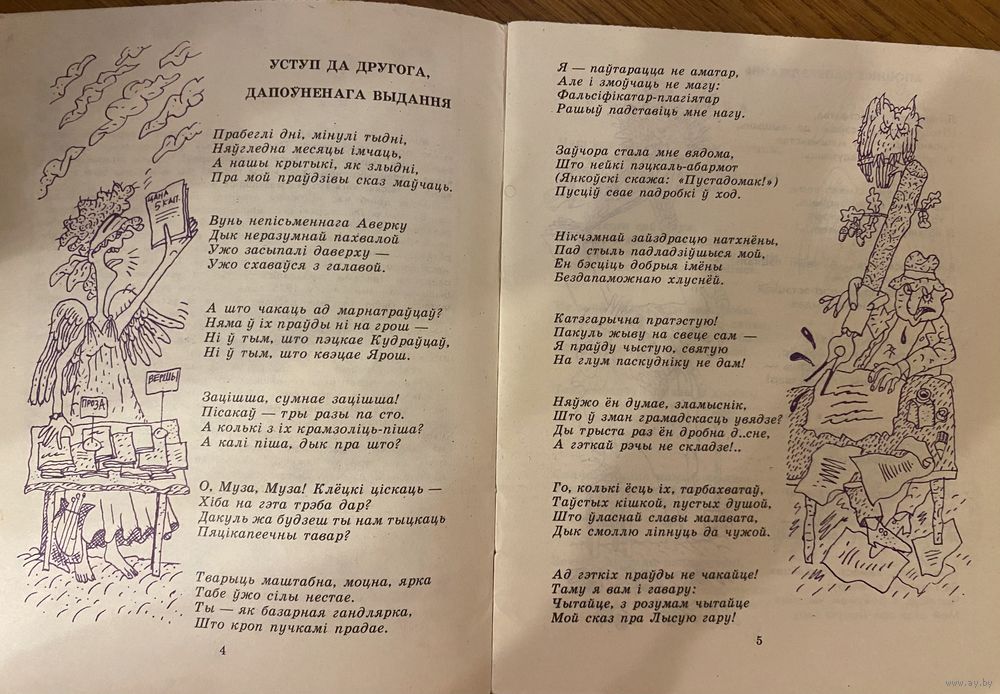 УСТУП ДА ДРУГОГА,
ДАПОЎНЕНАГА ВЫДАННЯ
Прабеглі дні, мінулі тыдні,
Няўгледна месяцы імчаць,
А нашы крытыкі, як злыдні,
Пра мой праўдзівы сказ маўчаць.
Вунь непісьменнага Аверку
Дык неразумнай пахвалой
Ужо засыпалі даверху —
Ужо схаваўся з галавой.
А што чакаць ад марнатраўцаў?
Няма ў іх праўды ні на грош —
Ні ў тым, што пэцкае Кудраўцаў,
Ні ў тым, што квэцае Ярош.
Зацішша, сумнае зацішша!
Пісакаў — тры разы па сто.
А колькі з іх крамзоліць-піша?
А калі піша, дык пра што?
О, Муза, Муза! Клёцкі ціскаць —
Хіба на гэта трэба дар?
Дакуль жа будзеш ты нам тыцкаць
Пяцікапеечны тавар?
Тварыць маштабна, моцна, ярка
Табе ўжо сілы нестае.
Ты — як базарная гандлярка,
Што кроп пучкамі прадае.
ЦАНА
5 КАП.
ВЕРШЫ
ПРОЗА
4
Я — паўтарацца не аматар,
Але і змоўчаць не магу:
Фальсіфікатар-плагіятар
Рашыў падставіць мне нагу.
Заўчора стала мне вядома,
Што нейкі пэцкаль-абармот
(Янкоўскі скажа: «Пустадомак!»)
Пусціў свае падробкі ў ход.
Нікчэмнай зайздрасцю натхнёны,
Пад стыль падладзіўшыся мой,
Ён бэсціць добрыя імёны
Бездапаможнаю хлуснёй.
Катэгарычна пратэстую!
Пакуль жыву на свеце сам —
Я праўду чыстую, святую
На глум паскудніку не дам!
Няўжо ён думае, зламыснік,
Што ў зман грамадскасць увядзе?
Ды трыста раз ён дробна д..сне,
А гэткай рэчы не складзе!..
Го, колькі ёсць іх, тарбахватаў,
Таўстых кішкой, пустых душой,
Што ўласнай славы малавата,
Дык смоллю ліпнуць да чужой.
Ад гэткіх праўды не чакайце!
Таму я вам і гавару:
Чытайце, з розумам чытайце
Мой сказ пра Лысую гару!
5
www.ay.by